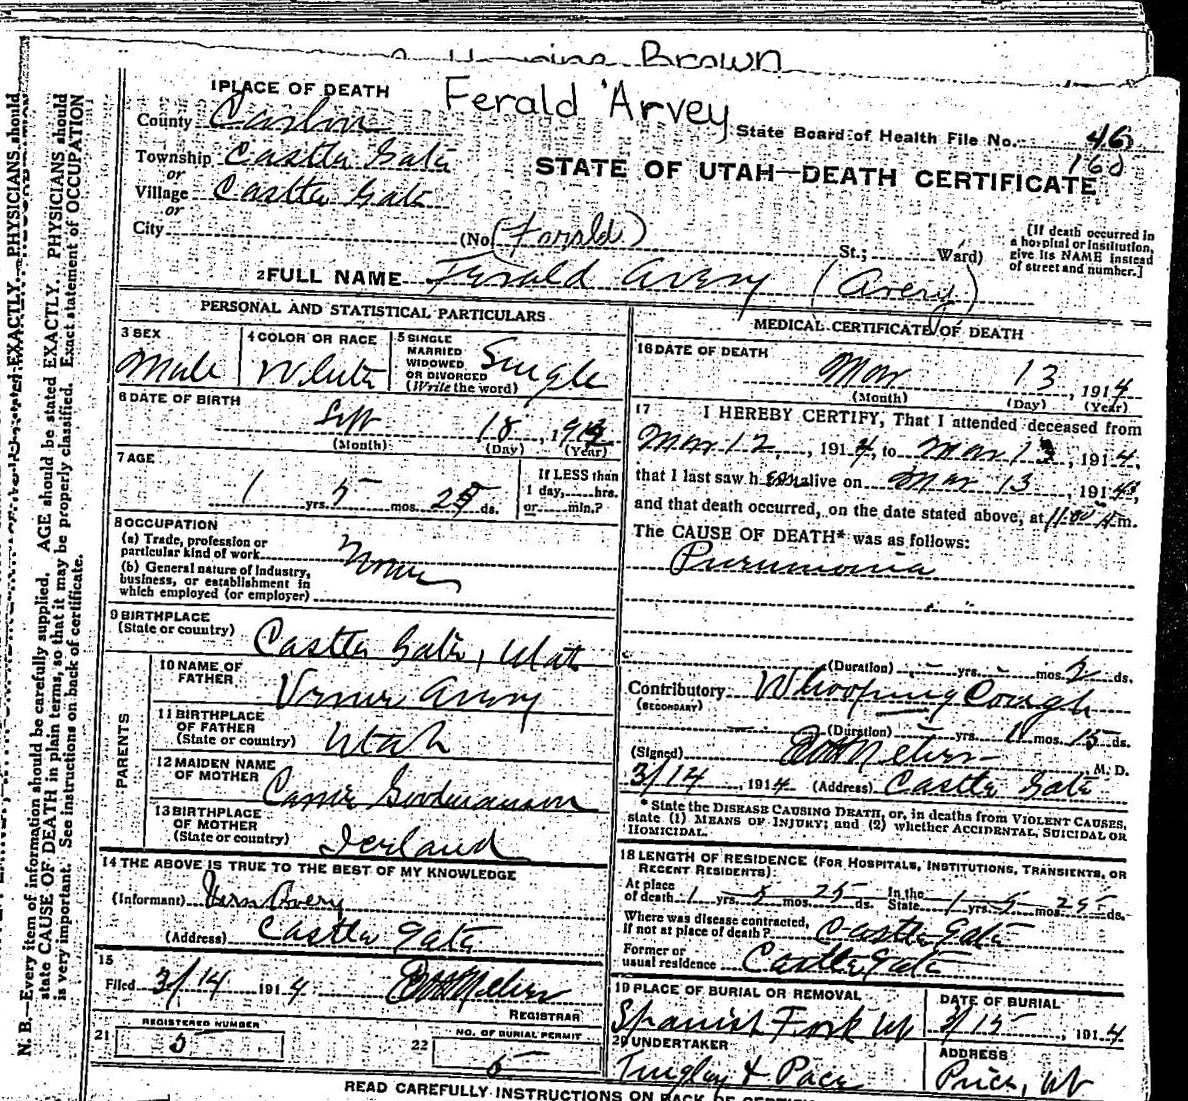 Brown
Ferald Arvey
1 PLACE OF DEATH
County Carbon
State Board of Health File No. 46
160
Township Castle Gate
or
Village Castle Gate
or
City
STATE OF UTAH—DEATH CERTIFICATE
(No. St.; Ward)
[If death occurred in
a hospital or institution,
give its NAME instead
of street and number.]
2 FULL NAME Ferald Avery (Avery)
PERSONAL AND STATISTICAL PARTICULARS
3 SEX
Male
4 COLOR OR RACE
White
5 SINGLE
MARRIED
WIDOWED
OR DIVORCED
(Write the word)
Single
6 DATE OF BIRTH
18, 191
(Month) (Day) (Year)
7 AGE
1 yrs. 5 mos. ds.
If LESS than
1 day, hrs.
or min.?
8 OCCUPATION
(a) Trade, profession or
particular kind of work None
(b) General nature of industry,
business, or establishment in
which employed (or employer)
9 BIRTHPLACE
(State or country) Castle Gate, Utah
PARENTS
10 NAME OF
FATHER
Avery
11 BIRTHPLACE
OF FATHER
(State or country) Utah
12 MAIDEN NAME
OF MOTHER
13 BIRTHPLACE
OF MOTHER
(State or country)
14 THE ABOVE IS TRUE TO THE BEST OF MY KNOWLEDGE
(Informant) Vern Avery
(Address) Castle Gate
15
Filed 3/14 1914
REGISTRAR
21 REGISTERED NUMBER
5
22 NO. OF BURIAL PERMIT
5
MEDICAL CERTIFICATE OF DEATH
16 DATE OF DEATH
Mar 13, 1914
(Month) (Day) (Year)
17 I HEREBY CERTIFY, That I attended deceased from
Mar 12, 1914, to Mar 13, 1914,
that I last saw h alive on Mar 13, 1914,
and that death occurred, on the date stated above, at 11:00 m.
The CAUSE OF DEATH* was as follows:
Pneumonia
(Duration) yrs. mos. 2 ds.
Contributory Whooping Cough
(SECONDARY)
(Duration) yrs. 1 mos. 15 ds.
(Signed) M. D.
3/14, 1914 (Address) Castle Gate
* State the DISEASE CAUSING DEATH, or, in deaths from VIOLENT CAUSES,
state (1) MEANS OF INJURY; and (2) whether ACCIDENTAL, SUICIDAL OR
HOMICIDAL.
18 LENGTH OF RESIDENCE (FOR HOSPITALS, INSTITUTIONS, TRANSIENTS, OR
RECENT RESIDENTS):
At place
of death 1 yrs. 5 mos. 25 ds. In the
State 1 yrs. 5 mos. 25 ds.
Where was disease contracted,
if not at place of death? Castle Gate
Former or
usual residence Castle Gate
19 PLACE OF BURIAL OR REMOVAL
Spanish Fork Ut
DATE OF BURIAL
3/15, 1914
20 UNDERTAKER
ADDRESS
Price, Ut
READ CAREFULLY INSTRUCTIONS ON BACK OF
N. B.—Every item of information should be carefully supplied. AGE should be stated EXACTLY. PHYSICIANS should
state CAUSE OF DEATH in plain terms, so that it may be properly classified. Exact statement of OCCUPATION
is very important. See instructions on back of certificate.